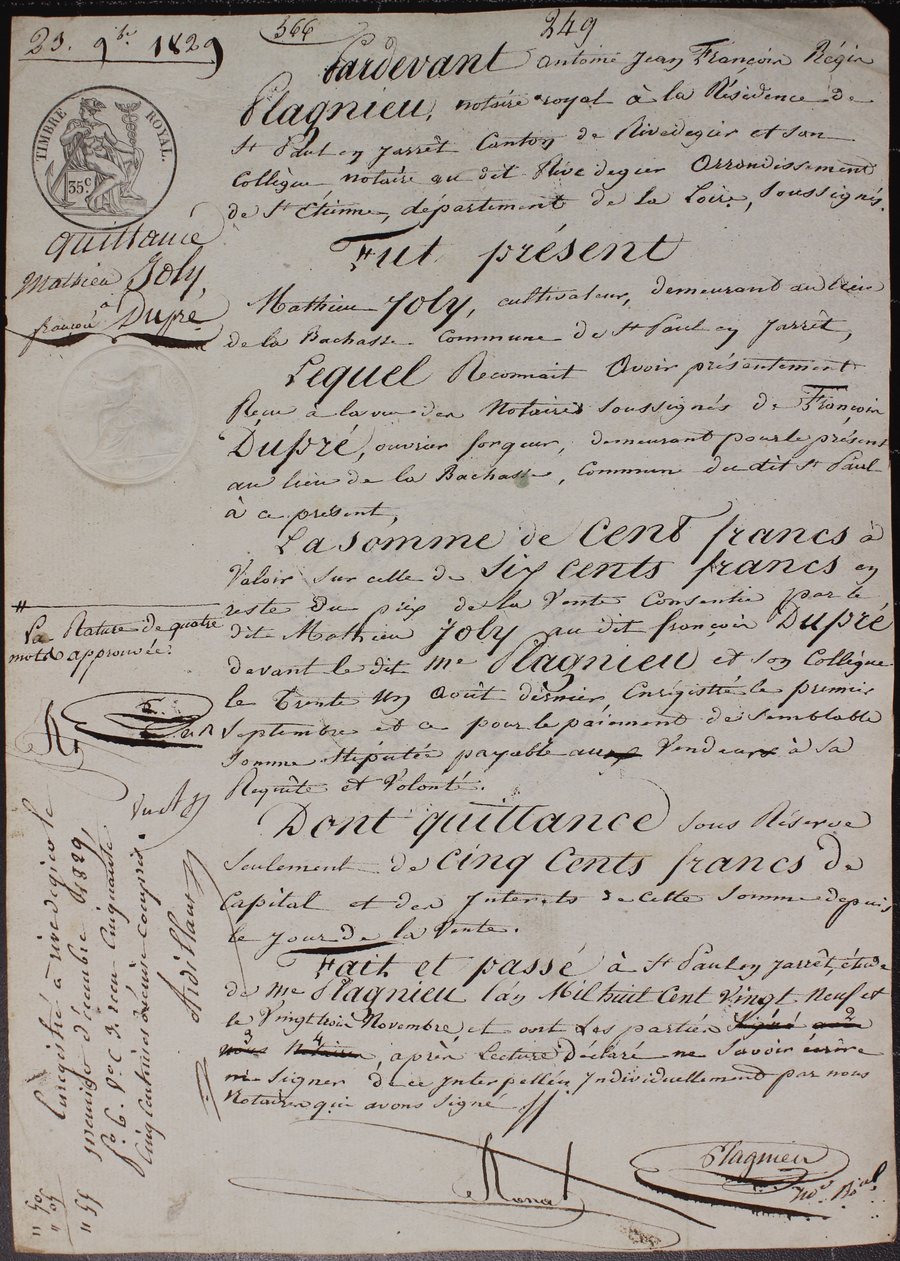 23. 9bre 1829
366
249
TIMBRE ROYAL.
35 c.
quittance
Mathieu Joly,
à
françois Dupré
Pardevant antoine Jean François Régis
Plagnieu, notaire royal à la Résidence de
St Paul en Jarrêt Canton de Rivedegier et son
Collègue notaire au dit Rive degier Arrondissement
de St Etienne, département de la Loire, soussignés.
Fut présent
Mathieu Joly, cultivateur, demeurant au lieu
de la Bachasse Commune de St Paul en Jarrêt,
Lequel Reconnait Avoir présentement
Reçu à la vue des Notaires soussignés de François
Dupré, ouvrier forgeur, demeurant pour le présent
au lieu de la Bachasse, Commune du dit St Paul
à ce présent,
La somme de Cent francs à
Valoir sur celle de Six cents francs en
reste du prix de la Vente Consentie par le
dit Mathieu Joly au dit françois Dupré
devant le dit Me Plagnieu et son Collègue
le trente un Août dernier Enrégistré le premier
Septembre et ce pour le paiement de semblable
somme stipulée payable aux Vendeurs à sa
Requête et Volonté.
Dont quittance sous Réserve
seulement de Cinq Cents francs de
Capital et des Interêts de cette somme depuis
le Jour de la Vente.
Fait et passé à St Paul en Jarrêt, étude
de Me Plagnieu l'an Mil huit Cent Vingt Neuf et
le Vingt trois Novembre et ont les parties signé avec 2
3 nous 4 Notaires, après Lecture déclaré ne savoir écrire
ni signer de ce Interpellés Individuellement par nous
Notaires qui avons signé
La Rature de quatre
mots approuvée.
Enregistré à rivedegier le
premier décembre 1829,
fo 6. Vo C 3. reçu cinquante
cinq centimes dixième compris.
" 50
" 05
" 55
Plagnieu
Nre Roal